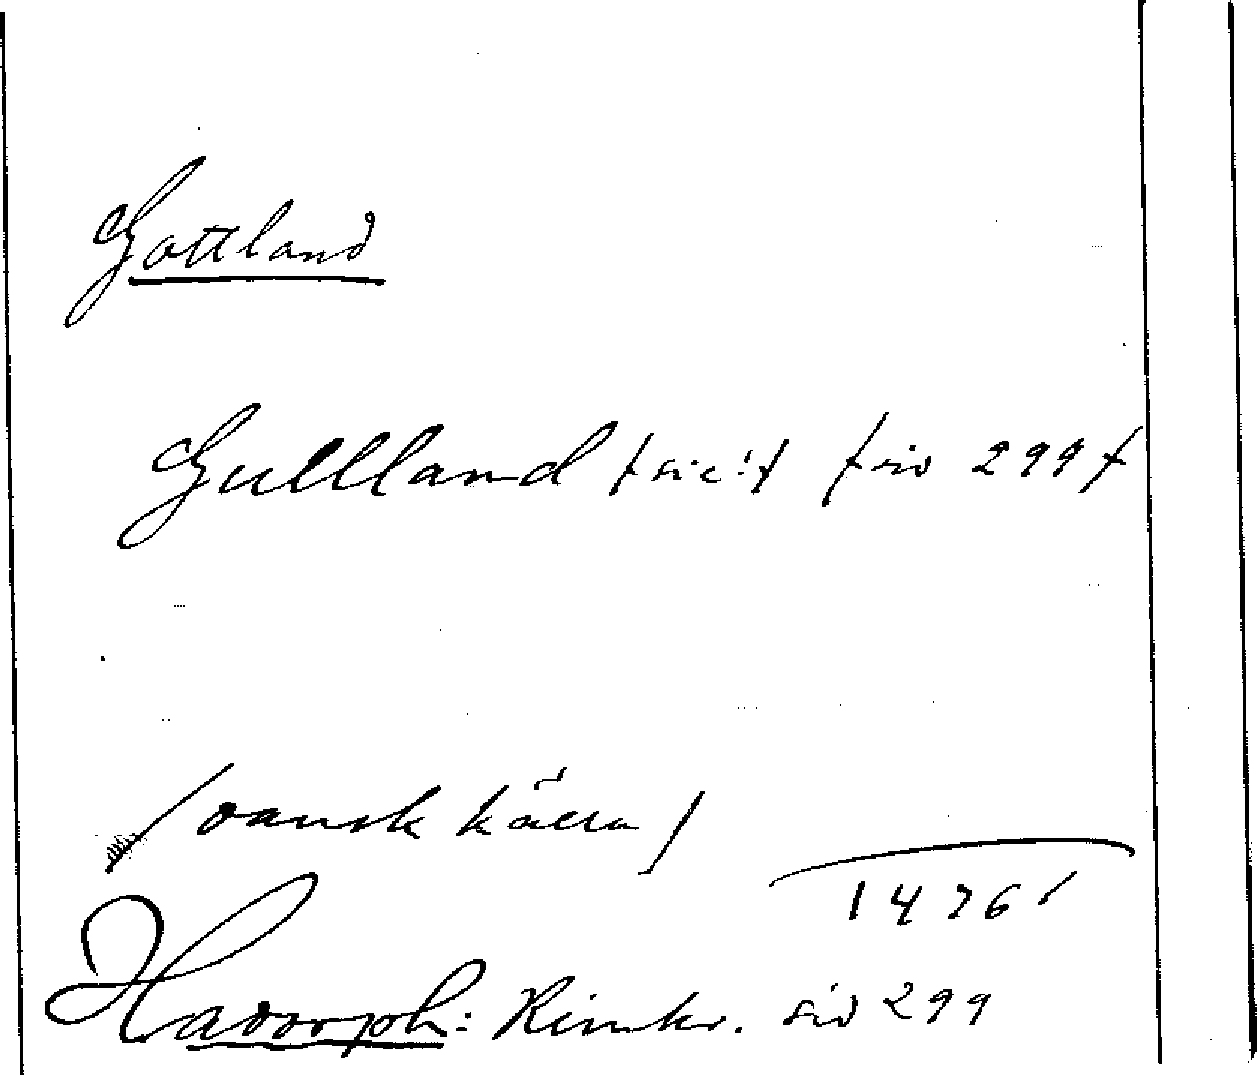 Gottland
Gullland /:sic:/ /sid 299/
/dansk källa/
1476
Hadorph: Rimkr. sid 299